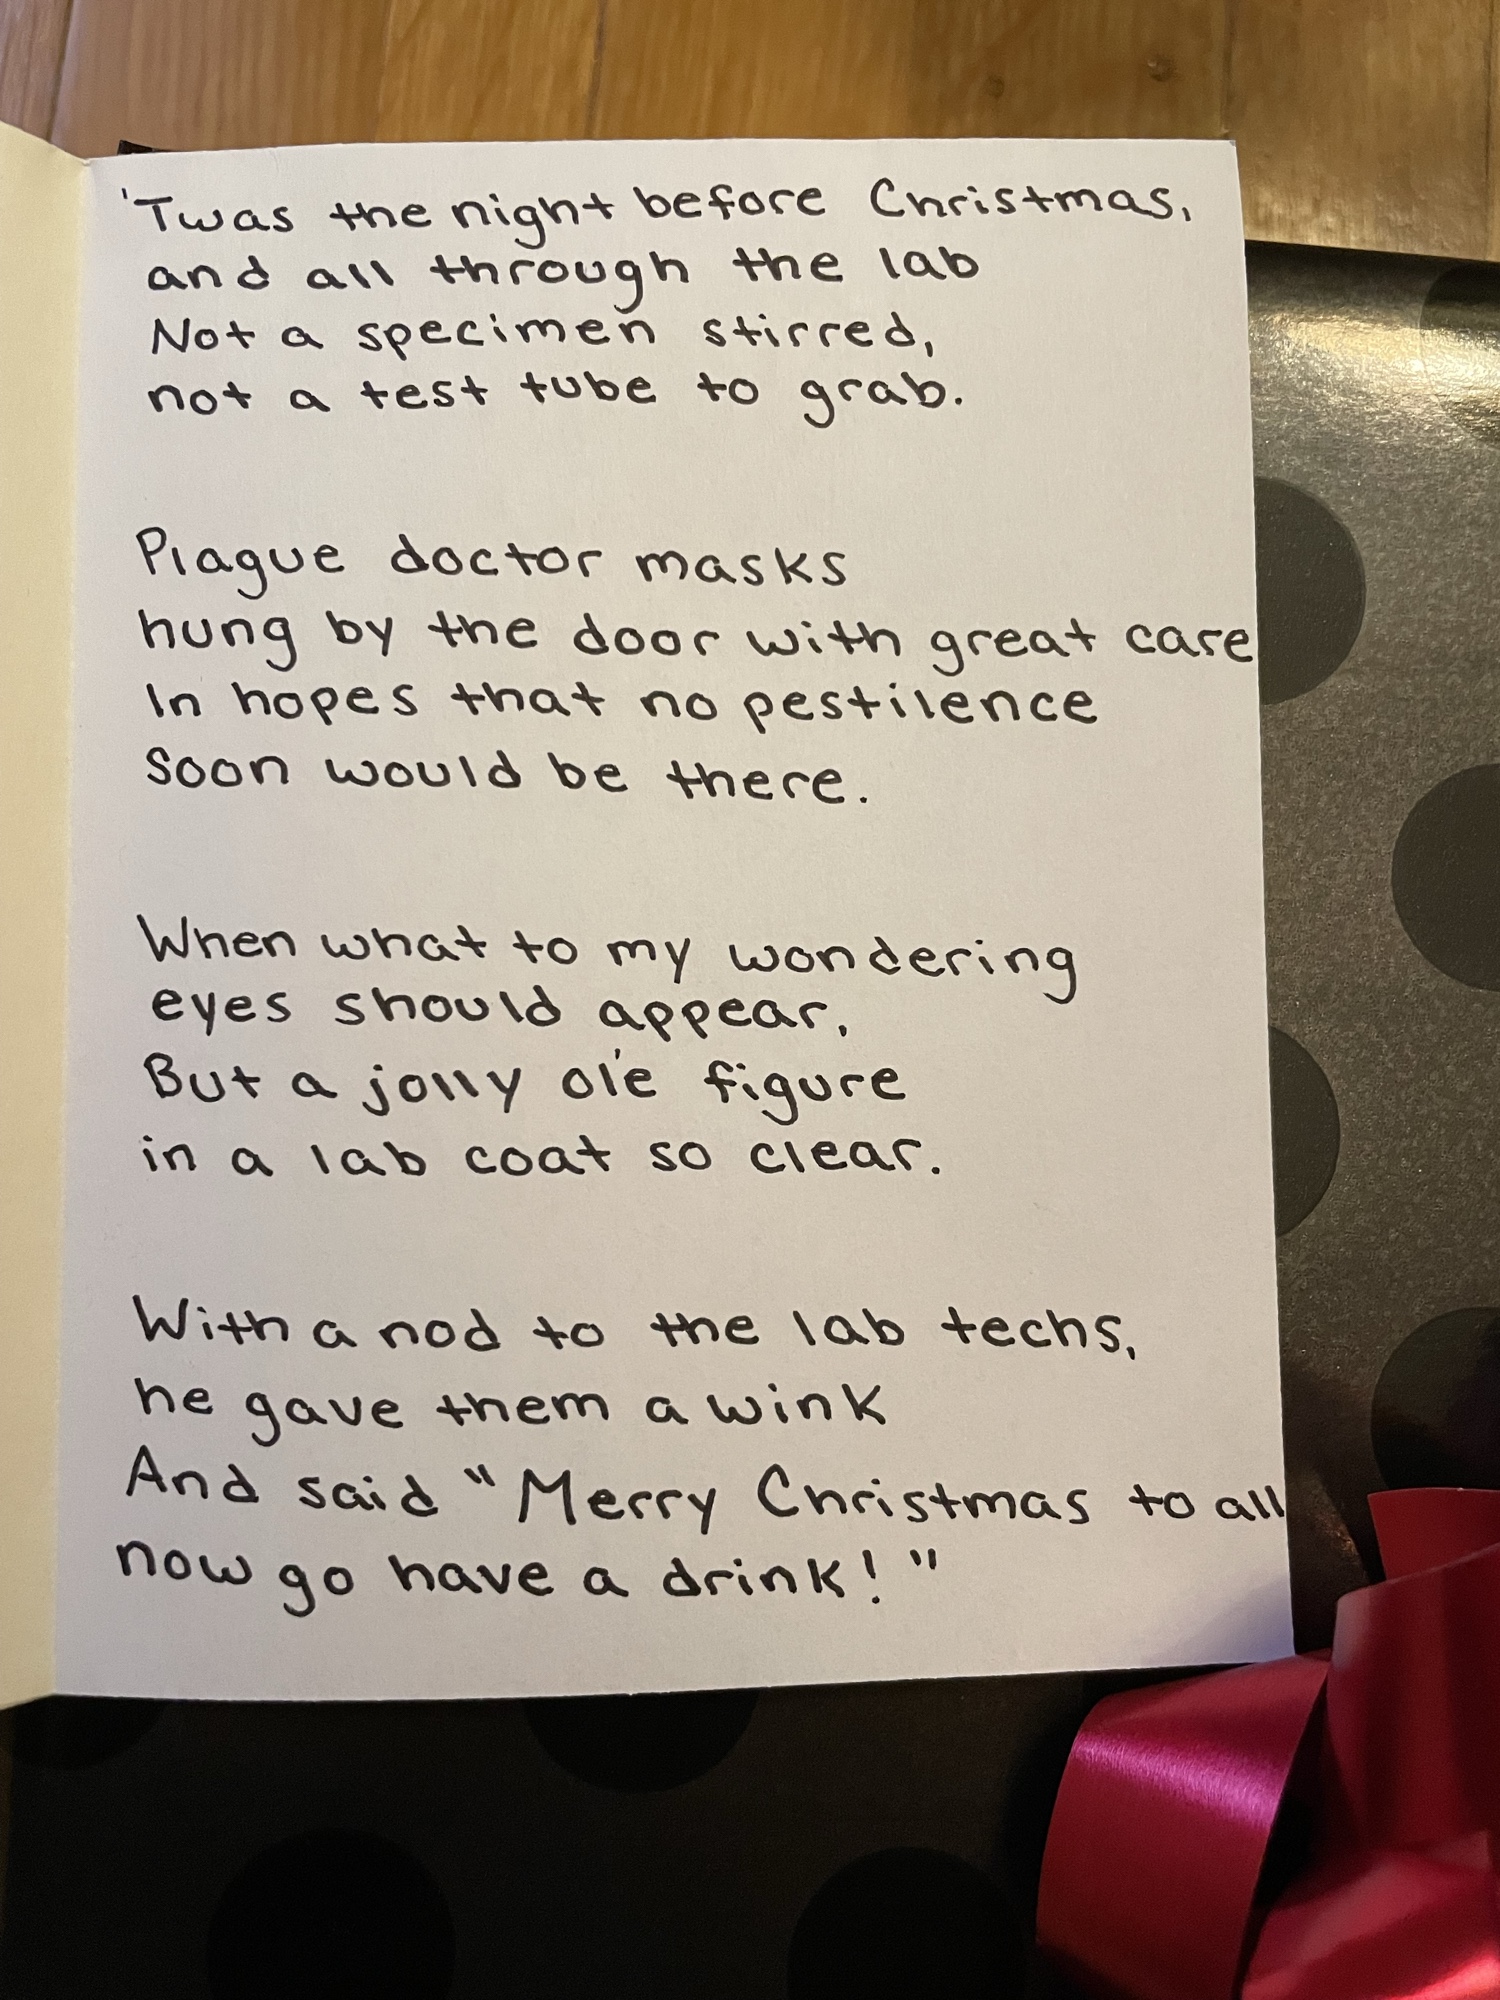 'Twas the night before Christmas,
and all through the lab
Not a specimen stirred,
not a test tube to grab.
Plague doctor masks
hung by the door with great care
In hopes that no pestilence
soon would be there.
When what to my wondering
eyes should appear,
But a jolly ol'e figure
in a lab coat so clear.
With a nod to the lab techs,
he gave them a wink
And said "Merry Christmas to all
now go have a drink!"